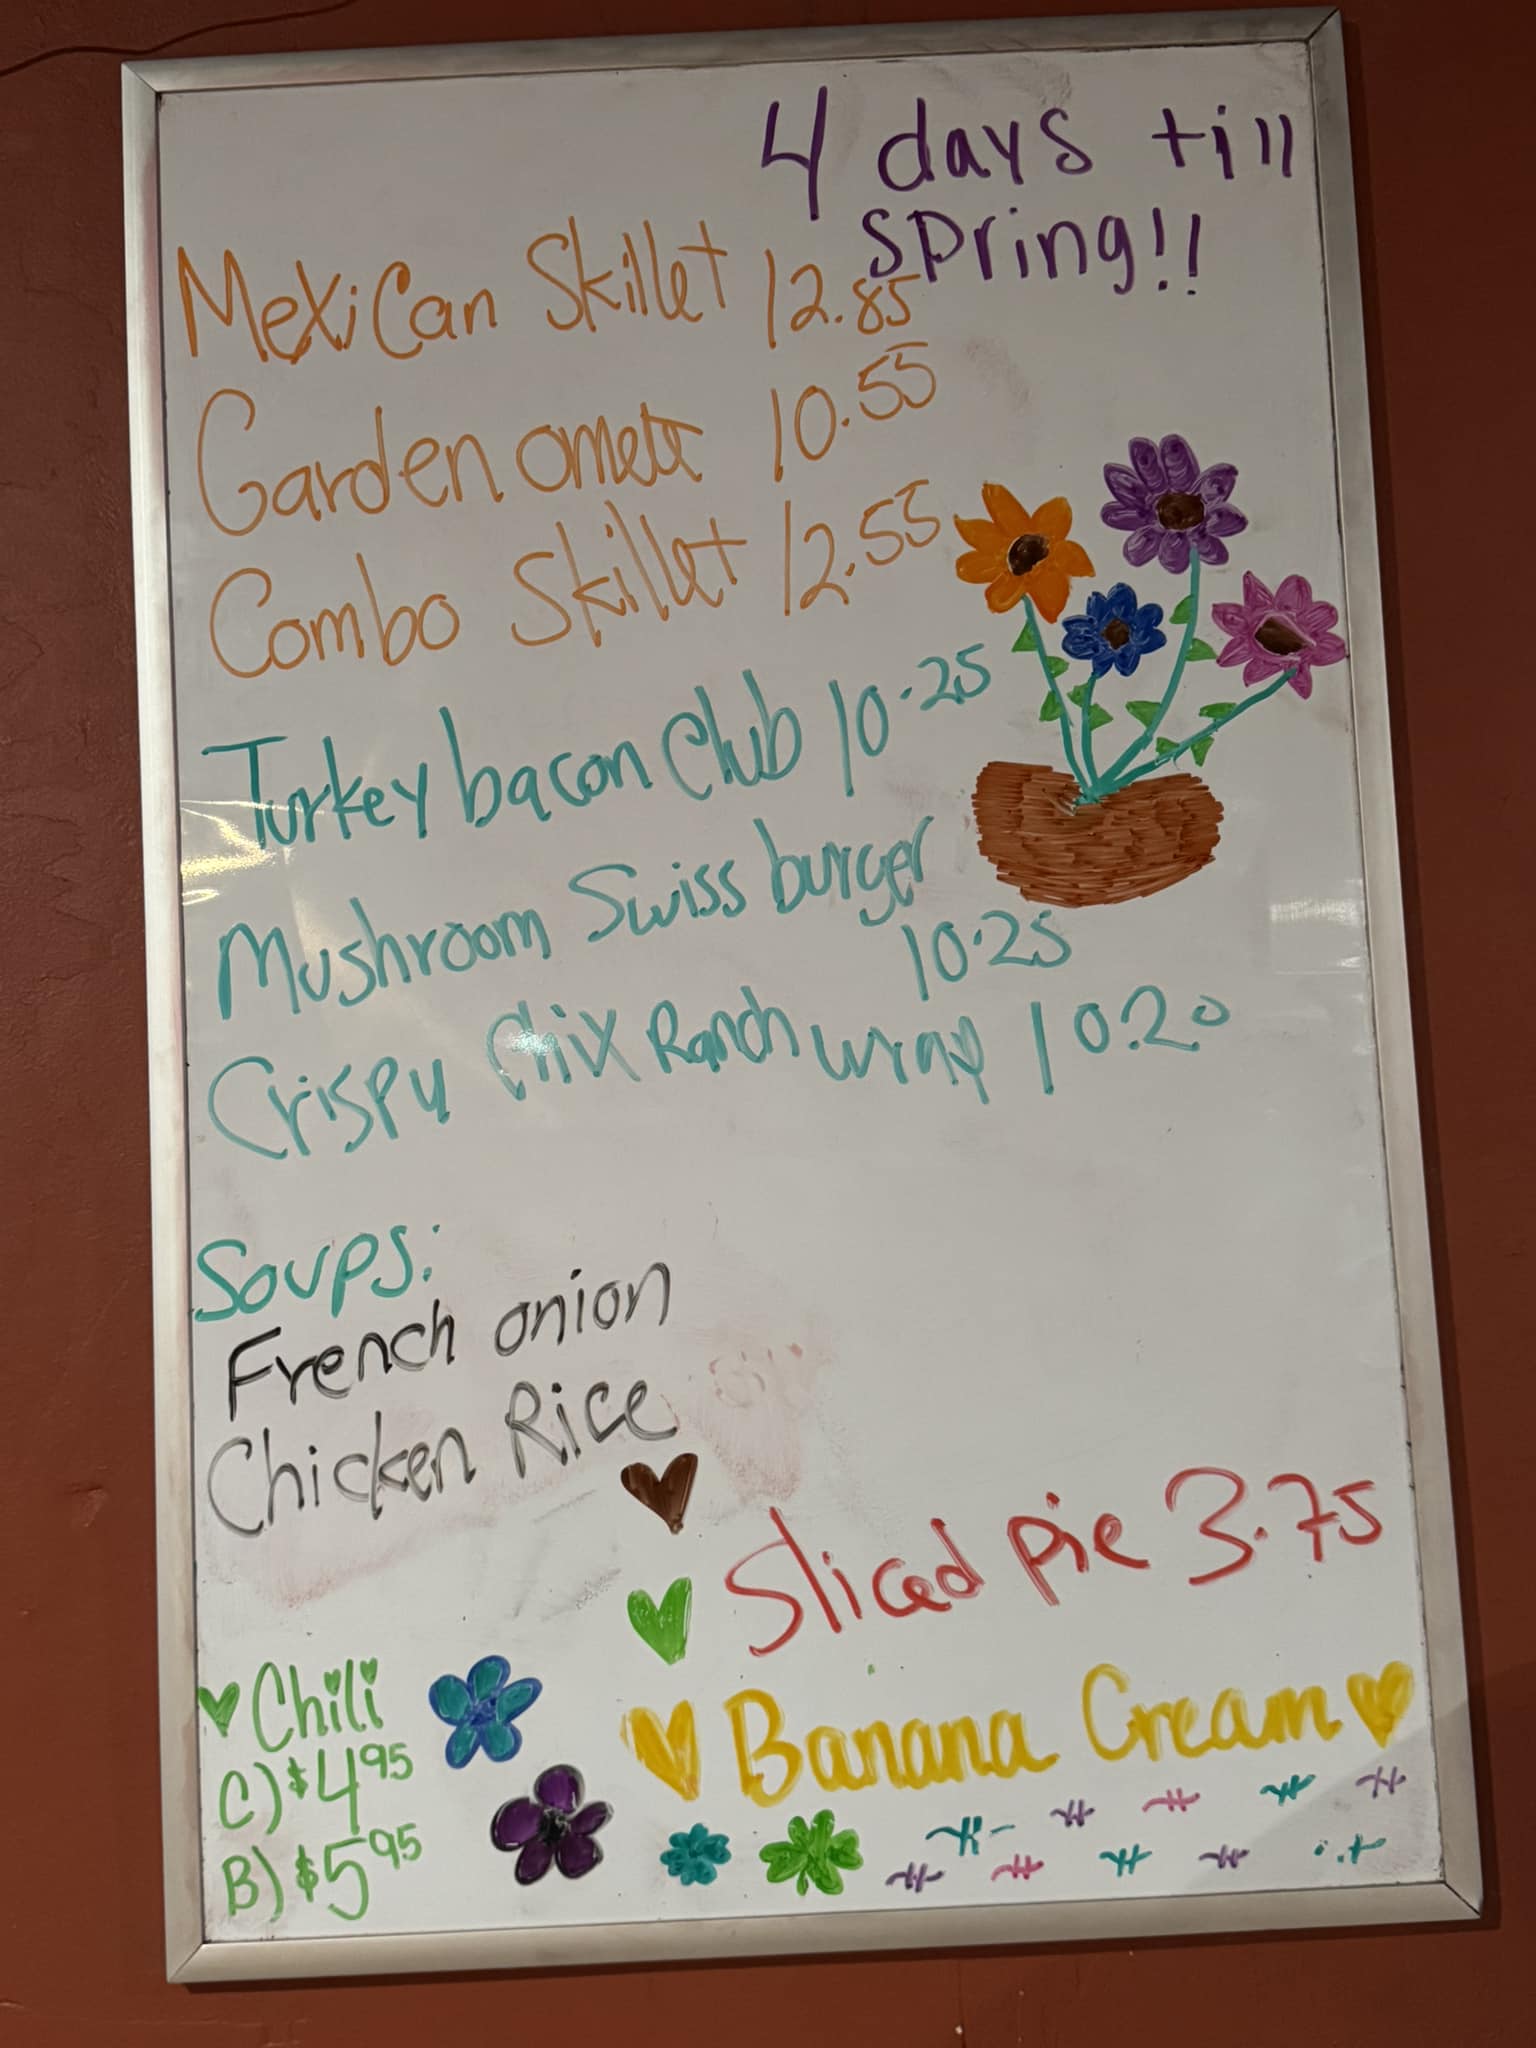 4 days till
spring!!
Mexican Skillet 12.85
Garden omelt 10.55
Combo Skillet 12.55
Turkey bacon Club 10.25
Mushroom Swiss burger
10.25
Crispy Chix Ranch wrap 10.20
Soups:
French onion
Chicken Rice
Sliced pie 3.75
Banana Cream
Chili
C) $4.95
B) $5.95